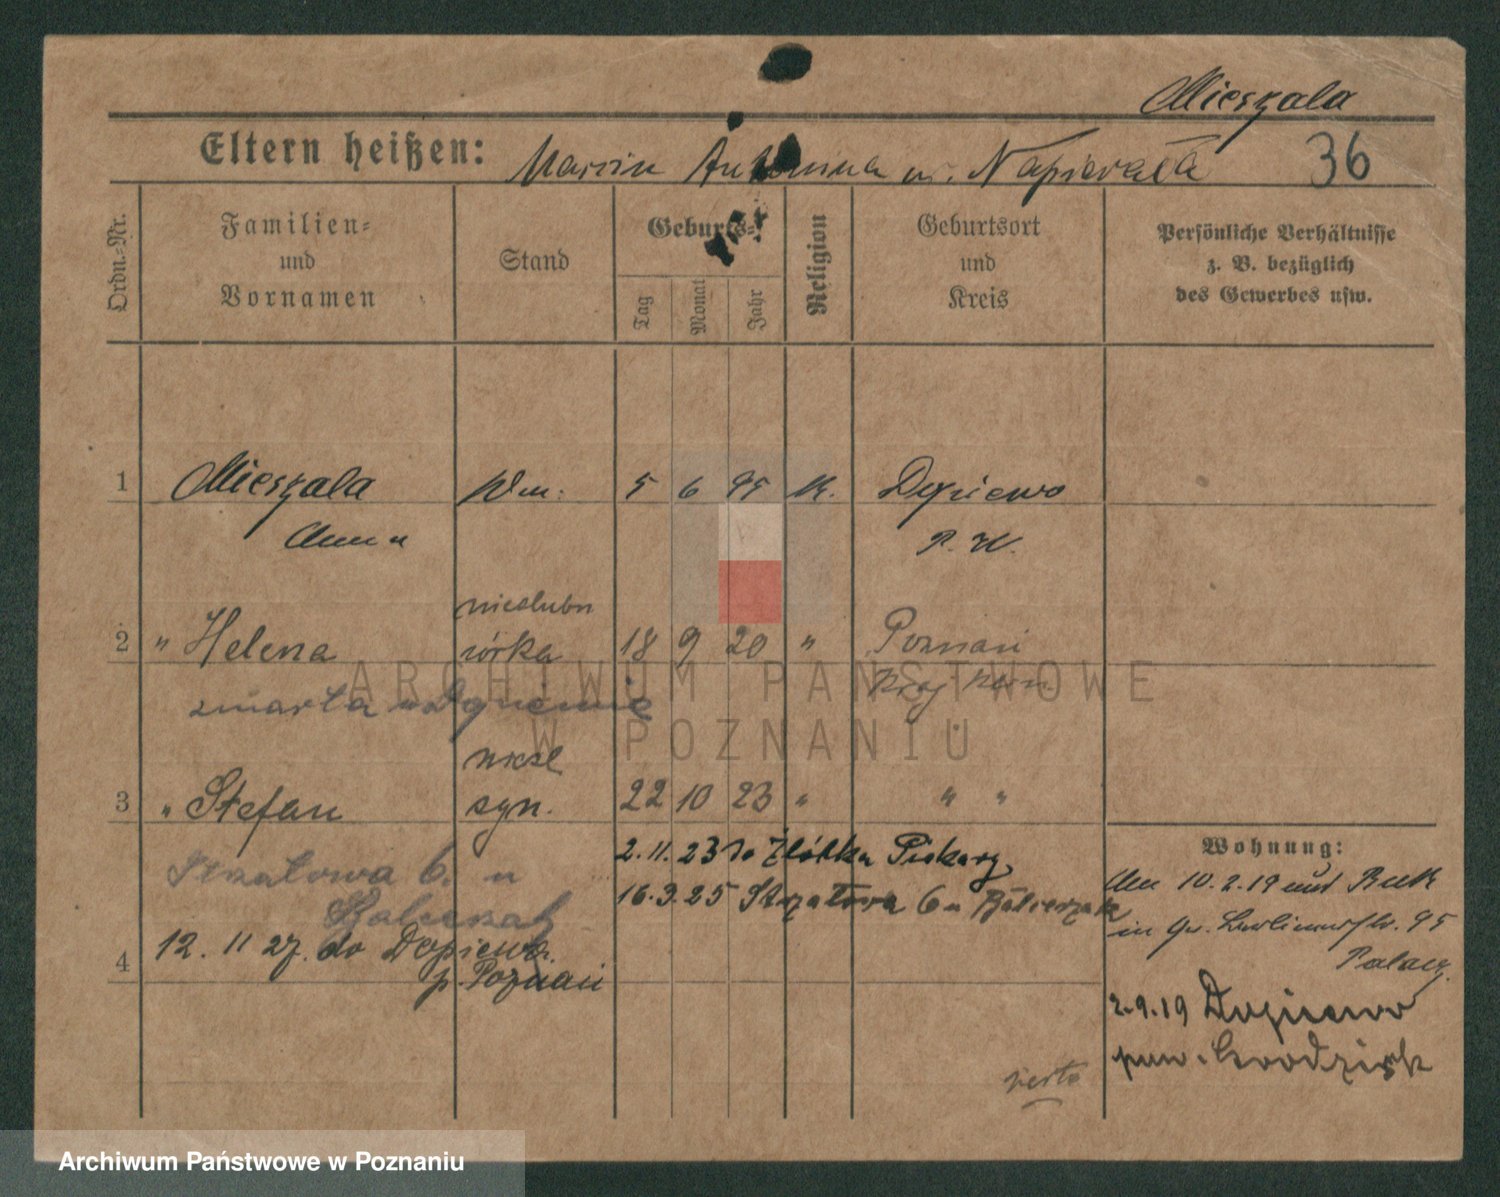 Mieszala
Eltern heißen: Marcin Antonina Napierała 36
Ordn.-Nr.
Familien-
und
Vornamen
Stand
Geburts-
Tag
Monat
Jahr
Religion
Geburtsort
und
Kreis
Persönliche Verhältnisse
z. B. bezüglich
des Gewerbes usw.
1 Mieszala 5 6 95 K. Dopiewo
Anna P. W.
nieślubn
2 " Helena córka 18 9 20 " Poznań
zmarła w Dopiewie
niesl
3 " Stefan syn. 22 10 23 " " "
Wohnung:
2.11.23 Żłóbka Piekary
Am 10.2.19 und Buk
Strzałowa 6. u
16.3.25 Strzałowa 6 u Balcerzak
in 95
Balcerzak
Palacz
12. 11 27. do Dopiewa.
4 p. Poznań
2.9.19 Dopiewo
pow. Grodzisk
verte
ARCHIWUM PAŃSTWOWE
W POZNANIU
Archiwum Państwowe w Poznaniu